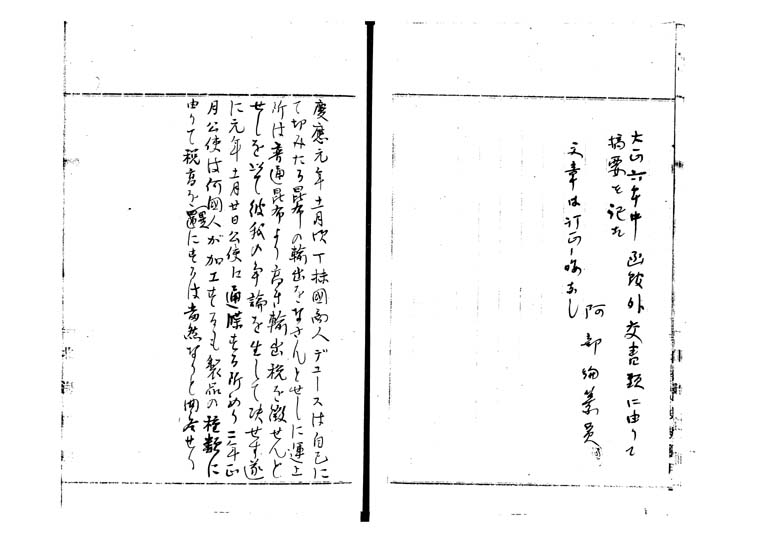 大正六年中函館外交書類に由りて
摘要を記す
文章は訂正あるべし
阿部編纂員
慶應元年十一月頃丁抹國商人デュースは自己に
て切みたる昆布の輸出をなさんとせしに運上
所は普通昆布より高き輸出税を徴せんと
せしを以て彼我の争論を生して決せず遂
に元年十一月廿日公使に通牒する所あり二年正
月公使は何國人が加工するも製品の種類に
由りて税高を異にするは當然なりと回答せり